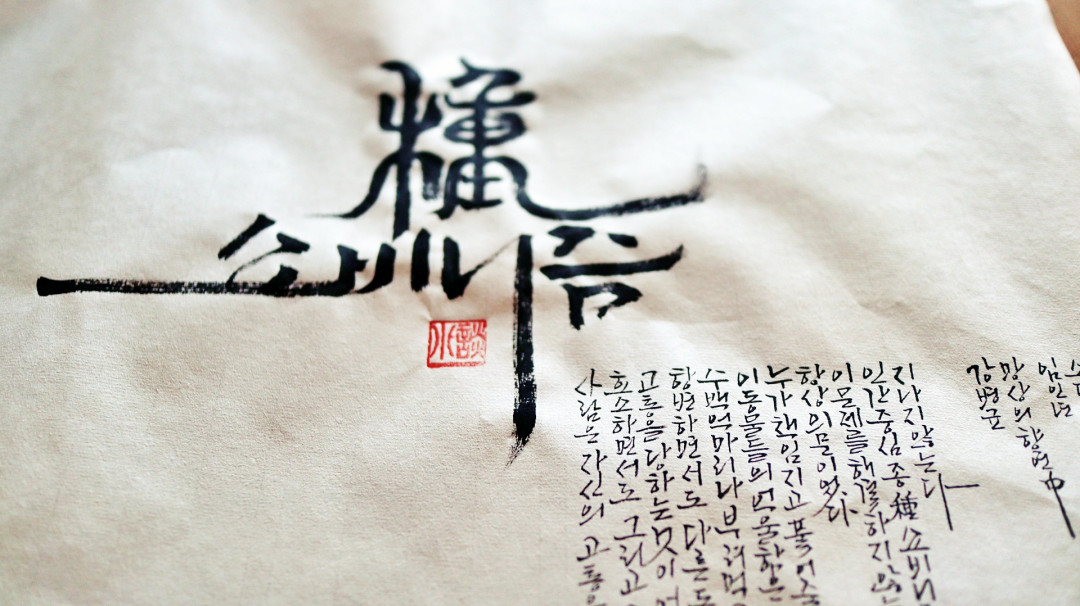 種
소비니즘
사람은 자신의 고통을
호소하면서도 그리고
고통을 당하는 것이
항변하면서도 다른
수백억마리나 부려먹
이 동물들의 억울함은
누가 책임지고 풀어줄
항상 의문이었다
이 문제를 해결하지
인간중심 종種소비니
지나지 않는다
강병균
망상의 향연 中
임인년